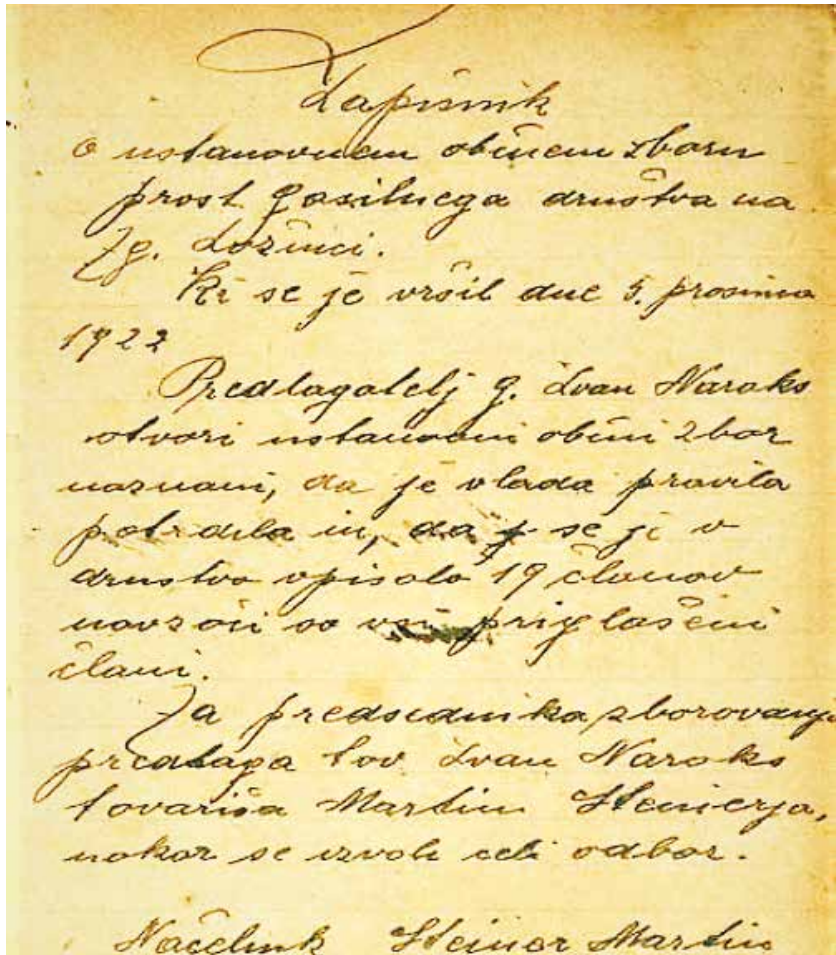 Zapisnik
o ustanovnem občnem zboru
prost gasilnega društva na
Zg. Ložnici.
Ki se je vršil dne 5. prosinca
1922
Predlagatelj g. Ivan Naraks
otvori ustanovni občni zbor
naznani, da je vlada pravila
potrdila in, da se je v
društvo vpisalo 19 članov
navzoči so vsi priglašeni
člani.
Za predsednika zborovanja
predlaga tov Ivan Naraks
tovariša Martin Steinerja,
nakar se izvoli celi odbor.
Načelnik Steiner Martin